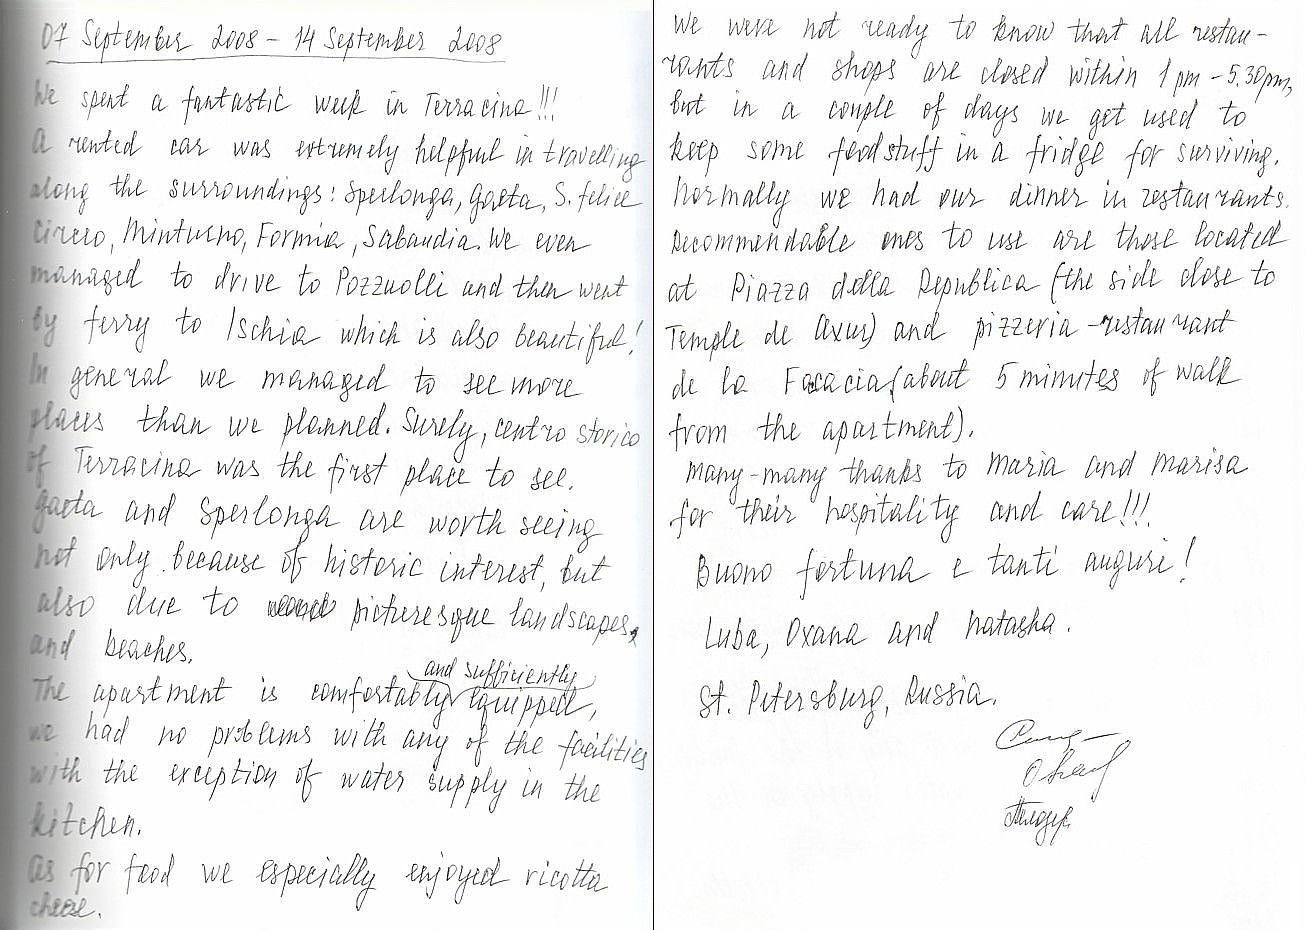 07 September 2008 – 14 September 2008
We spent a fantastic week in Terracina!!!
A rented car was extremely helpful in travelling
along the surroundings: Sperlonga, Gaeta, S. Felice
Circeo, Minturno, Formia, Sabaudia. We even
managed to drive to Pozzuolli and then went
by ferry to Ischia which is also beautiful!
In general we managed to see more
places than we planned. Surely, centro storico
of Terracina was the first place to see.
Gaeta and Sperlonga are worth seeing
not only because of historic interest, but
also due to picturesque landscapes,
and beaches.
and sufficiently
The apartment is comfortably equipped,
we had no problems with any of the facilities
with the exception of water supply in the
kitchen.
As for food we especially enjoyed ricotta
cheese.
We were not ready to know that all restau-
rants and shops are closed within 1 pm – 5.30 pm,
but in a couple of days we get used to
keep some foodstuff in a fridge for surviving.
Normally we had our dinner in restaurants.
Recommendable ones to use are those located
at Piazza della Republica (the side close to
Temple de Axus) and pizzeria-restaurant
de la Facacia (about 5 minutes of walk
from the apartment).
Many-many thanks to Maria and Marisa
for their hospitality and care!!!
Buono fortuna e tanti auguri!
Luba, Oxana and Natasha.
St. Petersburg, Russia.